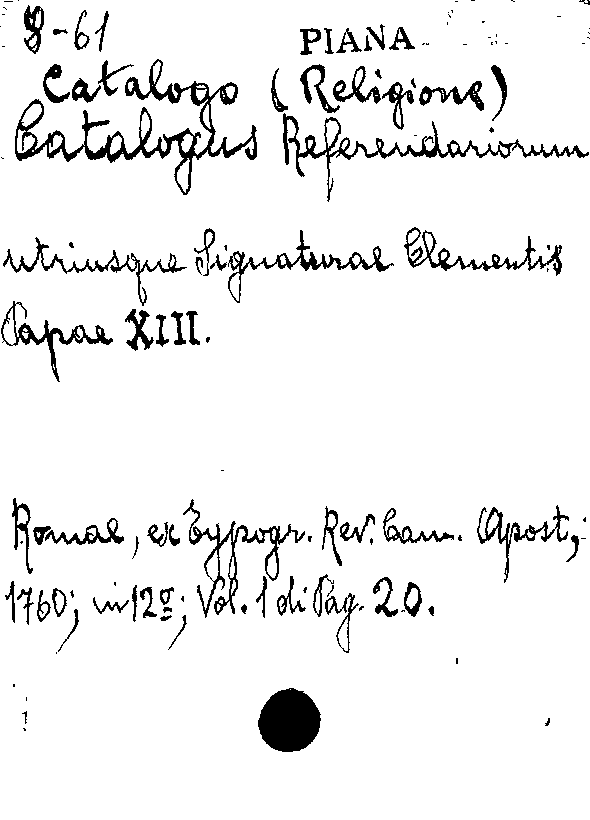 8-61 PIANA
Catalogo (Religione)
Catalogus Referendariorum
utriusque Signaturae Clementis
Papae XIII.
Romae, ex Typogr. Rev. Cam. Apost,;
1760; in 12º; Vol. 1 di Pag. 20.